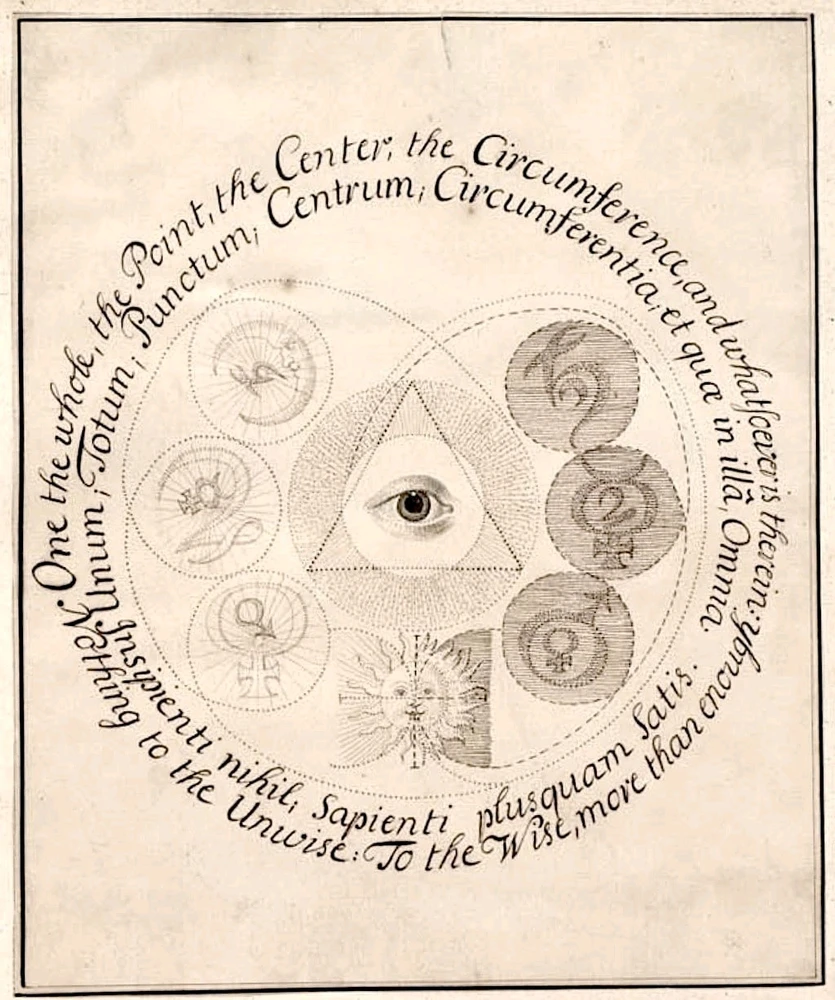 One the whole, the Point, the Center, the Circumference, and whatsoever is therein:
Nothing to the Unwise: To the Wise, more than enough
Unum; Totum; Punctum; Centrum; Circumferentia, et quæ in illâ, Omnia.
Insipienti nihil; Sapienti plusquam Satis.